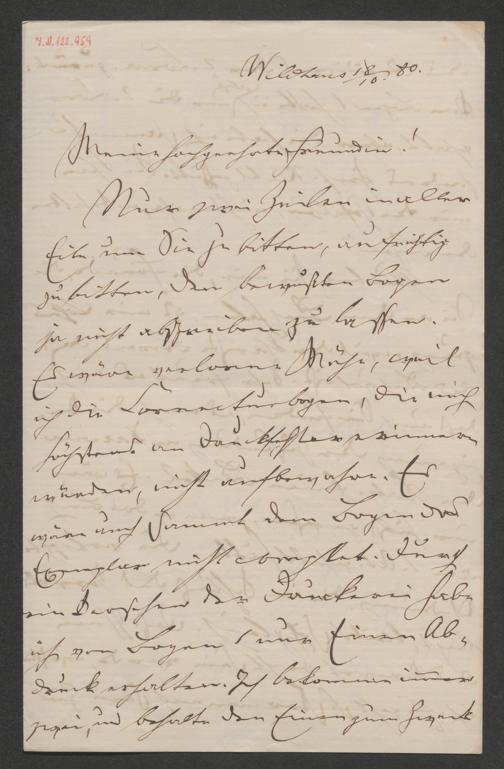 Y.N.122.959
Wildhaus 18/10. 80.
Meine hochgeehrte Freundin!
Nur zwei Zeilen in aller
Eile, um Sie zu bitten, aufrichtig
zu bitten, den bewußten Bogen
ja nicht abschreiben zu lassen.
Es wäre verlorne Mühe, weil
ich die Correcturbogen, die mich
höchstens an Druckfehler erinnern
würden, nicht aufbewahre. Es
wäre auch sammt dem Bogen das
Exemplar nicht complet. Durch
ein Versehen der Druckerei habe
ich von Bogen 1 nur Einen Ab-
druck erhalten. Ich bekomme immer
zwei, und behalte den Einen zum Zweck